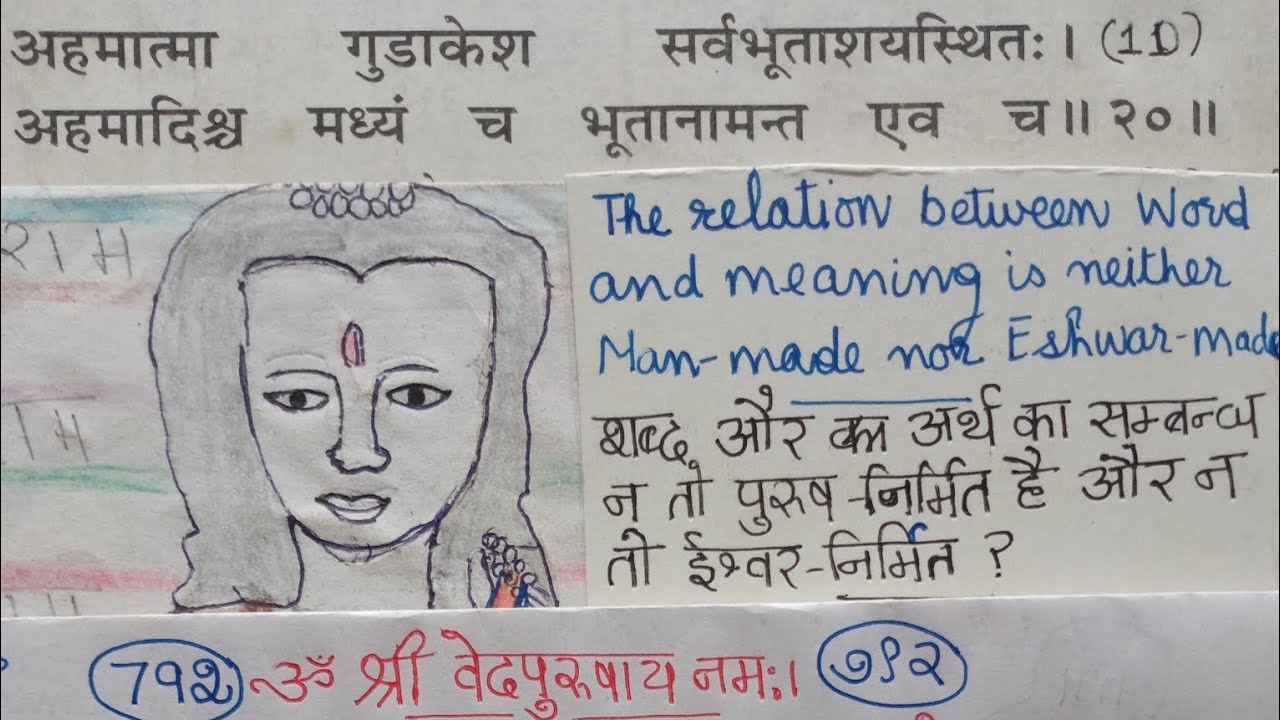 अहमात्मा गुडाकेश सर्वभूताशयस्थितः। (1D)
अहमादिश्च मध्यं च भूतानामन्त एव च॥२०॥
राम
The relation between Word
and meaning is neither
Man-made nor Eshwar-made
शब्द और का अर्थ का सम्बन्ध
न तो पुरुष-निर्मित है और न
तो ईश्वर-निर्मित ?
792 ॐ श्री वेदपुरुषाय नमः। ७९२